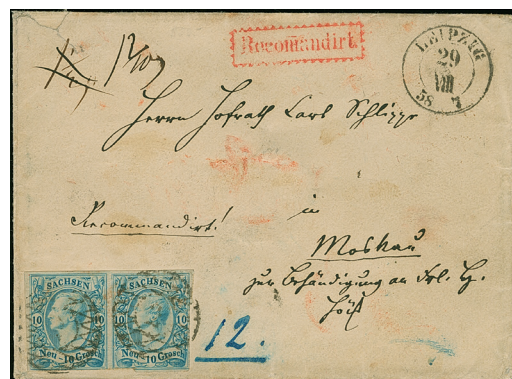 Recomandirt
LEIPZIG
29
VIII
58
Herrn Hofrath Carl Schlippe
Recommandirt!
in
Moskau
zur Behändigung an Frl.
SACHSEN SACHSEN
10 10 10 10
Neu-10 Grosch. Neu-10 Grosch.
12.